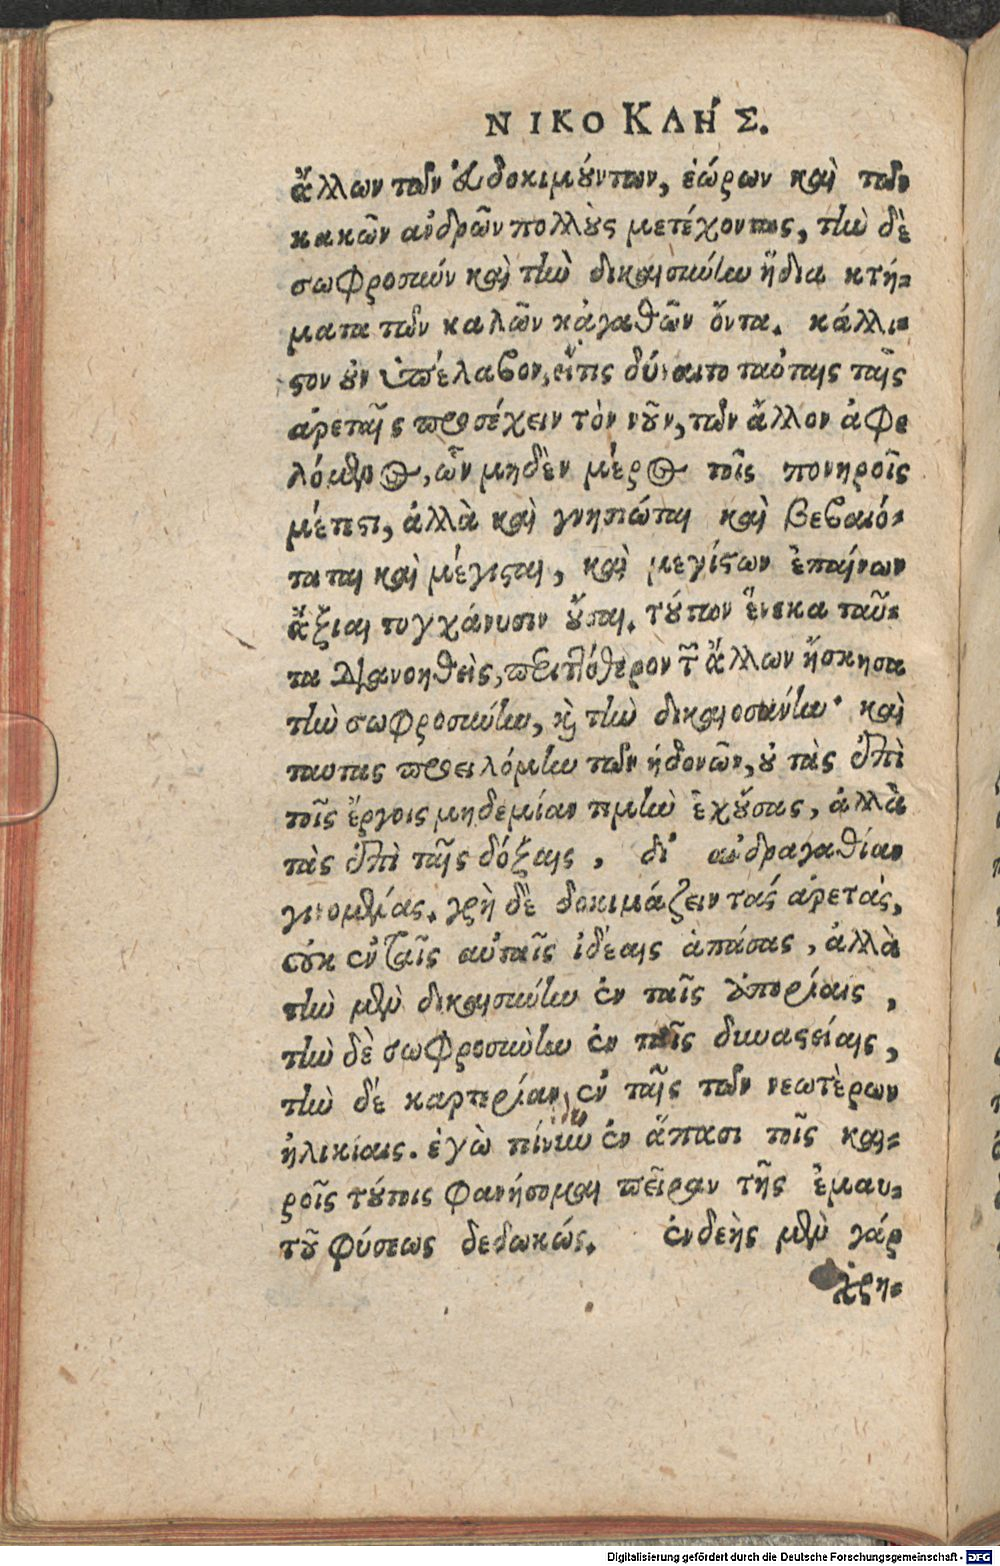 ΝΙΚΟΚΛΗ΄Σ.
ἄλλων τῶν εὐδοκιμούντων, ἑώρων καὶ τῶν
κακῶν ἀνδρῶν πολλοὺς μετέχοντας, τὴν δὲ
σωφροσύνην καὶ τὴν δικαιοσύνην ἴδια κτή-
ματα τῶν καλῶν κἀγαθῶν ὄντα. κάλλι-
στον οὖν ὑπέλαβον, εἴ τις δύναιτο ταύταις ταῖς
ἀρεταῖς προσέχειν τὸν νοῦν, τῶν ἄλλον ἀφε
λόμενος, ὧν μηδὲν μέρος τοῖς πονηροῖς
μέτεστι, ἀλλὰ καὶ γνησιώται καὶ βεβαιό-
ταται καὶ μέγισται, καὶ μεγίστων ἐπαίνων
ἄξιαι τυγχάνουσιν οὖσαι. τούτων ἕνεκα ταῦ-
τα διανοηθεὶς, περιττότερον τῶν ἄλλων ἤσκησα
τὴν σωφροσύνην, καὶ τὴν δικαιοσύνην· καὶ
ταύτας προειλόμην τῶν ἡδονῶν, οὐ τὰς ἐπὶ
τοῖς ἔργοις μηδεμίαν τιμὴν ἐχούσας, ἀλλὰ
τὰς ἐπὶ ταῖς δόξαις, δι' ἀνδραγαθίαν
γινομένας. χρὴ δὲ δοκιμάζειν τάς ἀρετὰς,
οὐκ ἐν ταῖς αὐταῖς ἰδέαις ἁπάσας, ἀλλὰ
τὴν μὲν δικαιοσύνην ἐν ταῖς ἀπορίαις,
τὴν δὲ σωφροσὺνην ἐν ταῖς δυναστείαις,
τὴν δέ καρτερίαν ἐν ταῖς τῶν νεωτὲρων
ἡλικίαις. ἐγὼ τοίνυν ἐν ἅπασι τοῖς και-
ροῖς τούτοις φανήσομαι πεῖραν τῆς ἐμαυ-
τοῦ φύσεως δεδωκώς. ἐνδεὴς μὲν γάρ
χρη-
Digitalisierung gefördert durch die Deutsche Forschungsgemeinschaft - DFG